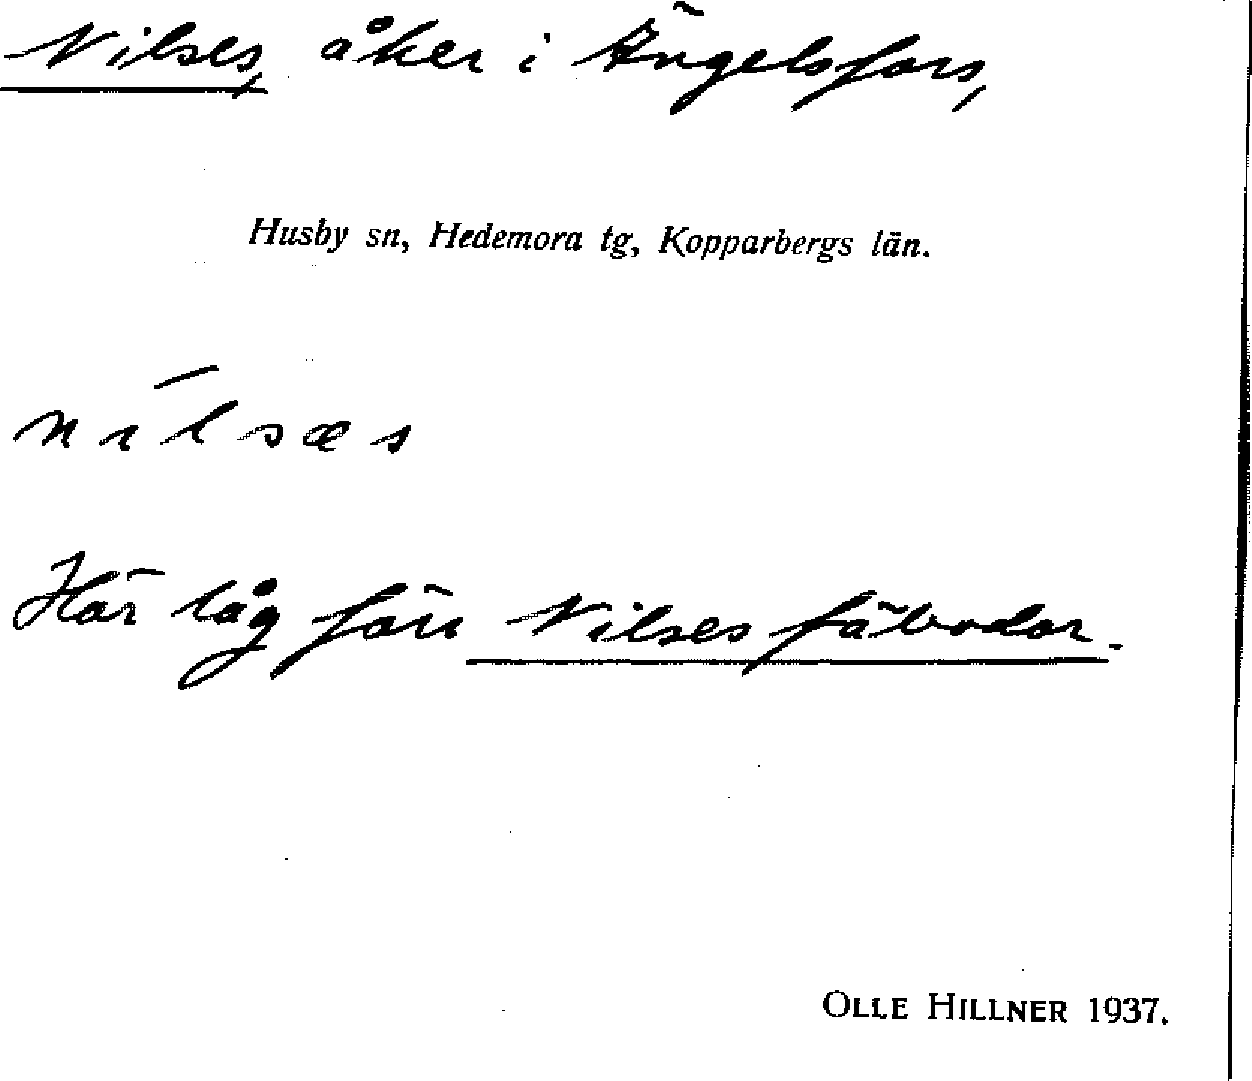 Nilses, åker i Ängelsfors,
Husby sn, Hedemora tg, Kopparbergs län.
nilsæs
Här låg förr Nilses fäbodar.
OLLE HILLNER 1937.